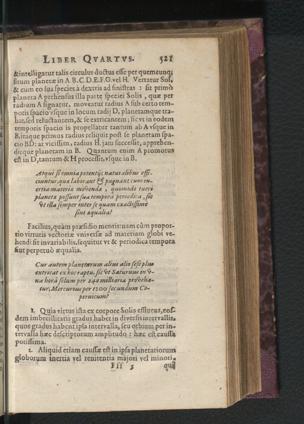 LIBER QVARTVS. 521
& intelligatur talis circulus ductus esse per quemcunq;
situm planetæ in A B C D E F G vel H. Vertatur Sol,
& cum eo sua species à dextris ad sinistras : sit primò
planeta A prehensus illa parte speciei Solis , quæ per
radium A signatur, moveatur radius A sub certo tem-
poris spatio vsque in locum radij D, planetamque tra-
hat, sed reluctantem, & se extricantem, sic vt in eodem
temporis spacio is propellatur tantùm ab A vsque in
B. itaque primus radius reliquit post se planetam spa-
cio BD: at vicissim, radius H jam successit, apprehen-
ditque planetam in B. Quantum enim A promotus
est in D, tantum & H processit, vsque in B.
Atqui si omnia potentijs natura alibus effi-
ciuntur, quæ laborant & pugnant cum in-
ertia materiæ movenda , quomodo tueri
planeta possunt sua tempora periodica , sic
vt illa semper inter se quam exactissimè
sint æqualia?
Faciliùs, quàm præsidio mentis: nam cùm propor-
tio virtutis vectoriæ vniversæ ad materiam globi ve-
hendi sit invariabilis, sequitur vt & periodica tempora
sint perpetuò æqualia.
Cur autem planetarum alius alio sese plus
extricat ex hoc raptu, sic vt Saturnus vn-
na horâ solum per 240 milliaria provehe-
tur, Mercurius per 1200 secundum Co-
pernicum?
1. Quia virtus ista ex corpore Solis essluens, eos-
dem imbecillitatis gradus habet in diversis intervallis,
quos gradus habent ipsa intervalla, seu orbium per in-
tervalla hæc descriptorum amplitudo : hæc est caussa
potissima.
2. Aliquid etiam caussæ est in ipsa planetariorum
globorum inertia vel renitentia majori vel minori,
III 3 qui